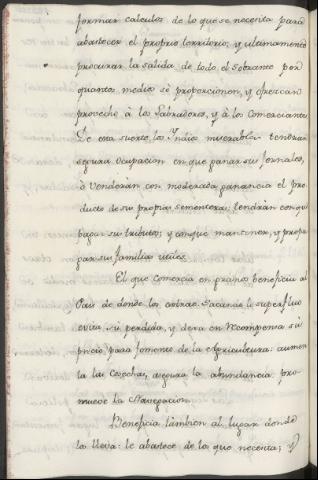 formar calculos de lo que se necesita para
abastecer el proprio territorio, y ultimamente
procurar la salida de todo el sobrante por
quantos medios se proporcionen, y ofrezcan
provecho à los Labradores, y à los Comerciantes
De esta suerte los Yndios miserables tendran
segura ocupacion en que ganar sus jornales,
ò venderàn con moderada ganancia el pro-
ducto de sus propias sementeras; tendràn con que
pagar sus tributos; y con que mantener, y propa
gar sus familias utiles.
El que comercia en granos beneficia al
Pais de donde los extrae. Sacando lo superfluo
evita su perdida, y dexa en recompensa su
precio para fomento de la Agricultura: aumen
ta las Cosechas, asegura la abundancia: pro-
mueve la Navegacion.
Beneficia tambien al lugar donde
los lleva: le abastece de lo que necesita; y